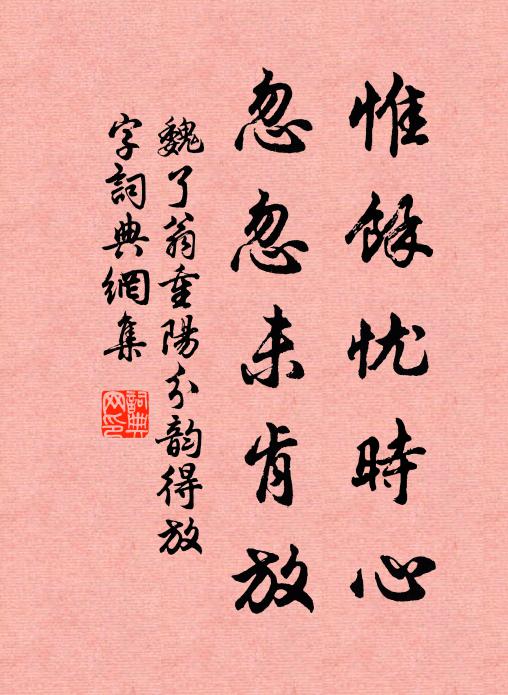 惟餘忧時心
忽忽未肯放
魏了翁重陽分韵得放
字詞典網集
詞典
网印